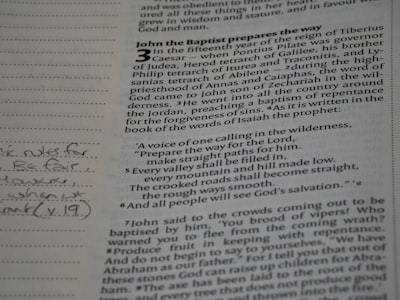 and was obedient to them.
ured all these things in her heart.
grew in wisdom and stature, and in favour with
God and man.
John the Baptist prepares the way
3 In the fifteenth year of the reign of Tiberius
Caesar – when Pontius Pilate was governor
of Judea, Herod tetrarch of Galilee, his brother
Philip tetrarch of Iturea and Traconitis, and Ly-
sanias tetrarch of Abilene – 2 during the high-
priesthood of Annas and Caiaphas, the word of
God came to John son of Zechariah in the wil-
derness. 3 He went into all the country around
the Jordan, preaching a baptism of repentance
for the forgiveness of sins. 4 As it is written in the
book of the words of Isaiah the prophet:
'A voice of one calling in the wilderness,
"Prepare the way for the Lord,
make straight paths for him.
5 Every valley shall be filled in,
every mountain and hill made low.
The crooked roads shall become straight,
the rough ways smooth.
6 And all people will see God's salvation."'
7 John said to the crowds coming out to be
baptised by him, 'You brood of vipers! Who
warned you to flee from the coming wrath?
8 Produce fruit in keeping with repentance.
And do not begin to say to yourselves, "We have
Abraham as our father." For I tell you that out of
these stones God can raise up children for Abra-
ham. 9 The axe has been laid to the root of the
trees, and every tree that does not produce good
fruit will be cut down and thrown into the fire.'
rules for
Be fair,
(v.19)